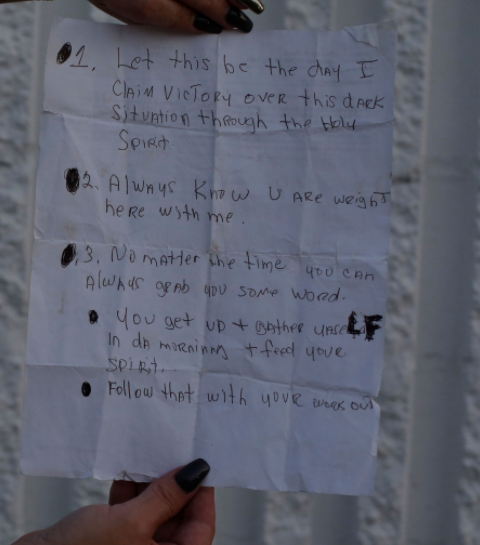 1. Let this be the dAy I
ClAim VicTory over this dARK
SituAtion through the Holy
Spirit.
2. AlwAys Know U ARe weighT
here with me.
3. No mAtter the time you cAn
AlwAys grAb you some word.
• You get up + gather yAselF
In dA morning + feed youR
spirit.
• Follow thAt with youR work out